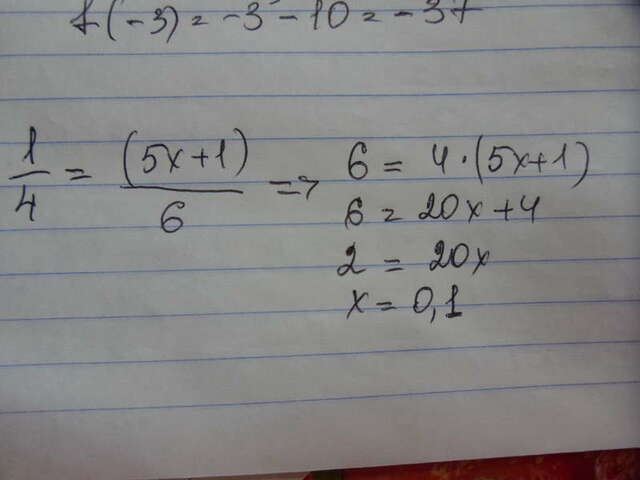 f(-3) = -3 - 10 = -37
1/4 = (5x+1)/6 => 6 = 4·(5x+1)
6 = 20x+4
2 = 20x
x = 0,1